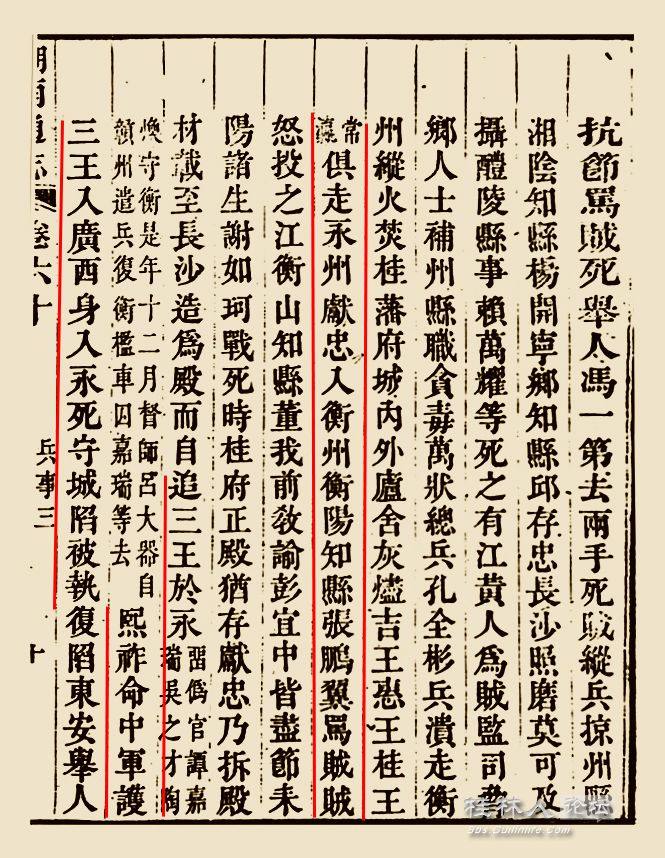 抗節罵賊死舉人馮一第去兩手死賊縱兵掠州縣
湘陰知縣楊開寧鄉知縣邱存忠長沙照磨莫可及
攝醴陵縣事賴萬耀等死之有江黃人爲賊監司
鄉人士補州縣職貪毒萬狀總兵孔全彬兵潰走衡
州縱火焚桂藩府城內外廬舍灰燼吉王惠王桂王
常瀛俱走永州獻忠入衡州衡陽知縣張鵬翼罵賊賊
怒投之江衡山知縣董我前教諭彭宜中皆盡節耒
陽諸生謝如珂戰死時桂府正殿猶存獻忠乃拆殿
材載至長沙造爲殿而自追三王於永留僞官譚嘉瑞吳之才陶
煥守衡是年十二月督師呂大器自贛州遣兵復衡檻車囚嘉瑞等去熙祚命中軍護
三王入廣西身入永死守城陷被執復陷東安舉人
湖南通志 卷六十 兵事三 十
桂林人论坛
bbs.Guilinlife.com